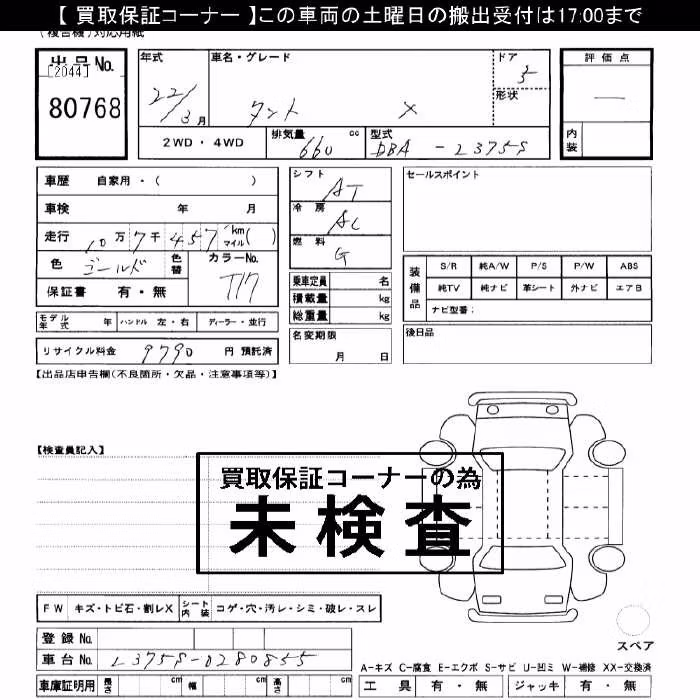 【 買取保証コーナー 】この車両の土曜日の搬出受付は17:00まで
(複合機)対応用紙
出品No.
[2044]
80768
年式
22/3月
車名・グレード
タント X
ドア
5
形状
評価点
—
内装
2WD・4WD
排気量 660 cc
型式 DBA - L375S
車歴 自家用・( )
車検 年 月
走行 10万7千457 km マイル( )
色 ゴールド 色替
カラーNo. T17
保証書 有・無
シフト AT
冷房 AC
燃料 G
乗車定員 名
積載量 kg
総重量 kg
セールスポイント
装備品
S/R 純A/W P/S P/W ABS
純TV 純ナビ 革シート 外ナビ エアB
ナビ型番:
モデル年式 年 ハンドル 左・右 ディーラー・並行
リサイクル料金 9790 円 預託済
名変期限 月 日
後日品
【出品店申告欄(不良箇所・欠品・注意事項等)】
【検査員記入】
買取保証コーナーの為
未検査
FW キズ・トビ石・割レX シート内装 コゲ・穴・汚レ・シミ・破レ・スレ
スペア
登録No.
車台No. L375S-0280855
A-キズ C-腐食 E-エクボ S-サビ U-凹ミ W-補修 XX-交換済
車庫証明用 長さ cm 幅 cm 高さ cm
工具 有・無 ジャッキ 有・無